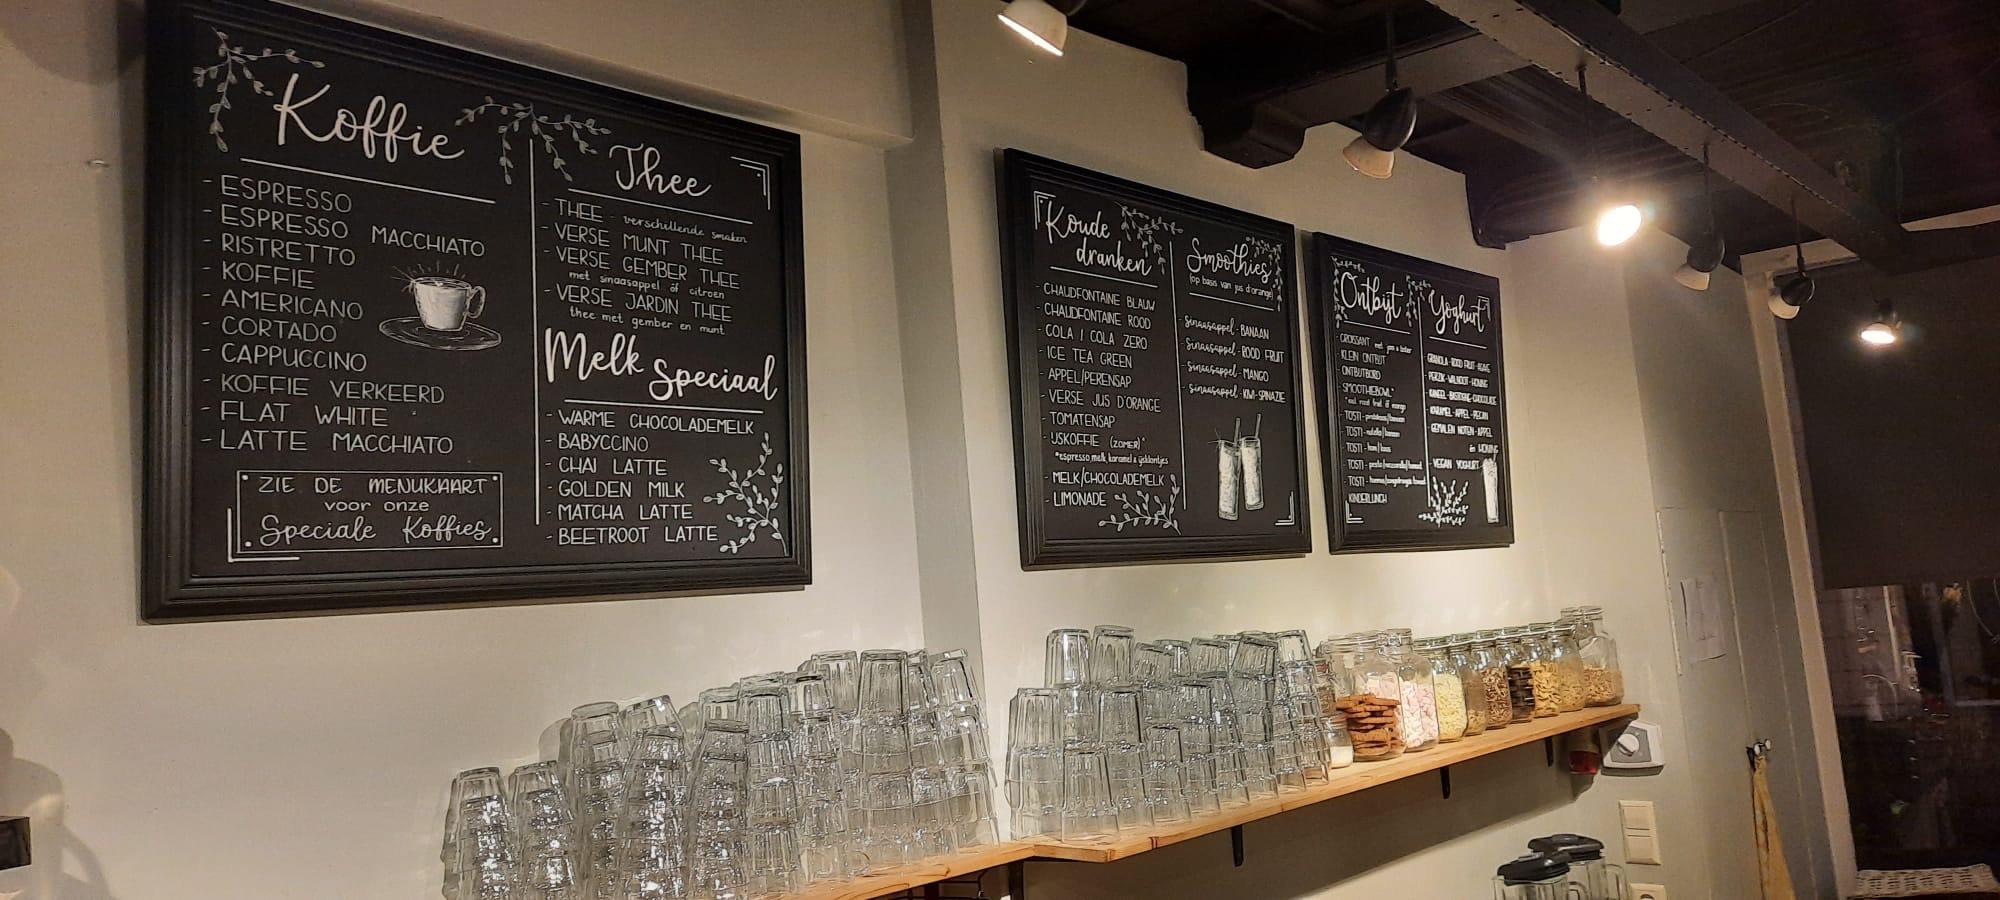 Koffie
- ESPRESSO
- ESPRESSO MACCHIATO
- RISTRETTO
- KOFFIE
- AMERICANO
- CORTADO
- CAPPUCCINO
- KOFFIE VERKEERD
- FLAT WHITE
- LATTE MACCHIATO
ZIE DE MENUKAART
voor onze
Speciale Koffies
Thee
- THEE - verschillende smaken
- VERSE MUNT THEE
- VERSE GEMBER THEE
met sinaasappel óf citroen
- VERSE JARDIN THEE
thee met gember en munt
Melk Speciaal
- WARME CHOCOLADEMELK
- BABYCCINO
- CHAI LATTE
- GOLDEN MILK
- MATCHA LATTE
- BEETROOT LATTE
Koude
dranken
- CHAUDFONTAINE BLAUW
- CHAUDFONTAINE ROOD
- COLA / COLA ZERO
- ICE TEA GREEN
- APPEL/PERENSAP
- VERSE JUS D'ORANGE
- TOMATENSAP
- IJSKOFFIE (ZOMER)*
*espresso, melk, karamel & ijsklontjes
- MELK/CHOCOLADEMELK
- LIMONADE
Smoothies
(op basis van jus d'orange)
- sinaasappel - BANAAN
- sinaasappel - ROOD FRUIT
- sinaasappel - MANGO
- sinaasappel - KIWI - SPINAZIE
Ontbijt
- CROISSANT met jam & boter
- KLEIN ONTBIJT
- ONTBIJTBORD
- SMOOTHIEBOWL*
rood fruit óf mango
- TOSTI -
- TOSTI - nutella/banaan
- TOSTI - ham/kaas
- TOSTI - pesto/mozzarella/tomaat
- TOSTI -
- KINDERLUNCH
Yoghurt
- GRANOLA - ROOD FRUIT - AGAVE
- PERZIK - WALNOOT - HONING
- KANEEL - BASTOGNE - CHOCOLADE
- KARAMEL - APPEL - PECAN
- GEMALEN NOTEN - APPEL
én HONING
- VEGAN YOGHURT